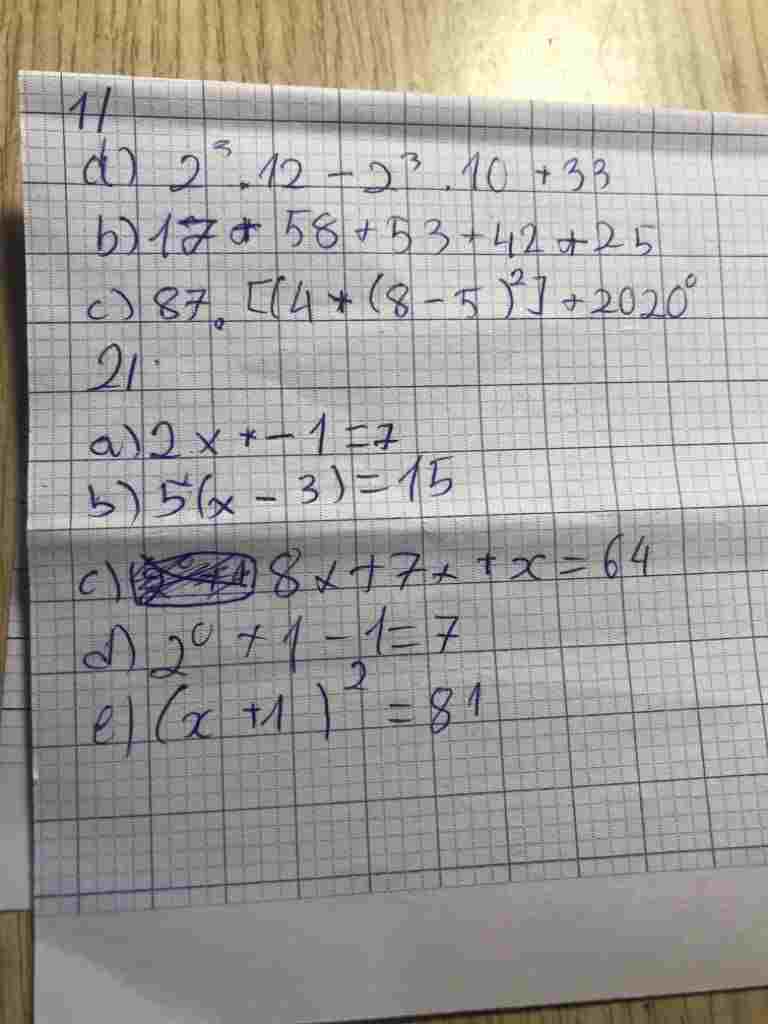 1/
a) 2³.12 - 2³.10 + 33
b) 17 + 58 + 53 + 42 + 25
c) 87. [(4 + (8 - 5)²] + 2020⁰
2/.
a) 2x + - 1 = 7
b) 5(x - 3) = 15
c) 8x + 7x + x = 64
d) 2⁰ + 1 - 1 = 7
e) (x + 1)² = 81